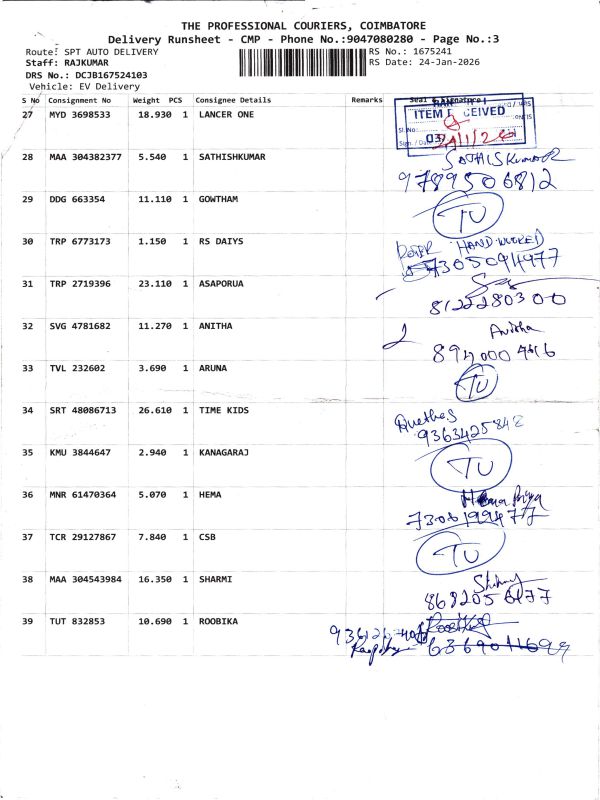 THE PROFESSIONAL COURIERS, COIMBATORE
Delivery Runsheet - CMP - Phone No.:9047080280 - Page No.:3
Route: SPT AUTO DELIVERY RS No.: 1675241
Staff: RAJKUMAR RS Date: 24-Jan-2026
DRS No.: DCJB167524103
Vehicle: EV Delivery
S No Consignment No Weight PCS Consignee Details Remarks Seal & Signature
27 MYD 3698533 18.930 1 LANCER ONE
ITEM RECEIVED
28 MAA 304382377 5.540 1 SATHISHKUMAR SATHISKUMAR
9789506812
29 DDG 663354 11.110 1 GOWTHAM TU
30 TRP 6773173 1.150 1 RS DAIYS HAND WORKED
7305094977
31 TRP 2719396 23.110 1 ASAPORUA
8122280300
32 SVG 4781682 11.270 1 ANITHA Anitha
33 TVL 232602 3.690 1 ARUNA TU
34 SRT 48086713 26.610 1 TIME KIDS
9363425842
35 KMU 3844647 2.940 1 KANAGARAJ TU
36 MNR 61470364 5.070 1 HEMA
37 TCR 29127867 7.840 1 CSB TU
38 MAA 304543984 16.350 1 SHARMI
39 TUT 832853 10.690 1 ROOBIKA